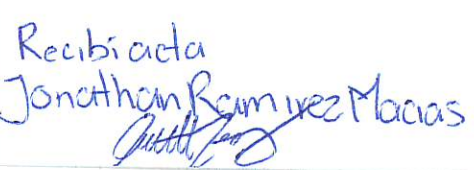 Recibi acta
Jonathan Ramirez Macias